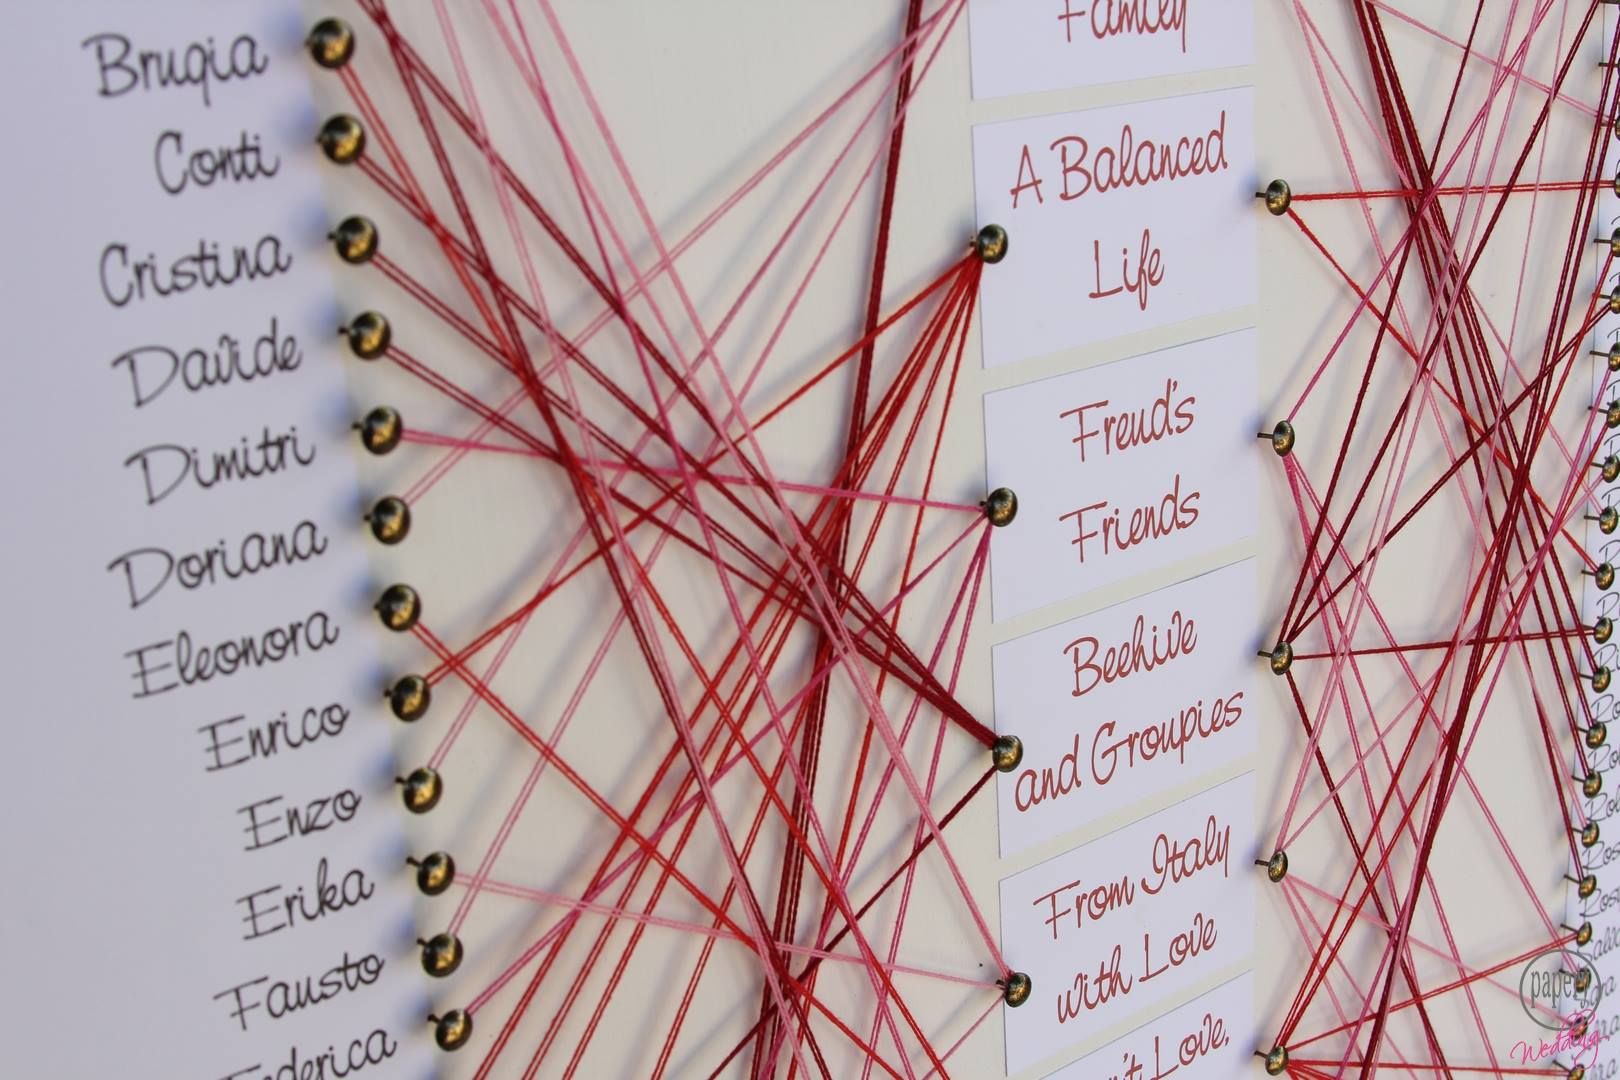 Brugia
Conti
Cristina
Davide
Dimitri
Doriana
Eleonora
Enrico
Enzo
Erika
Fausto
Family
A Balanced
Life
Freud's
Friends
Beehive
and Groupies
From Italy
with Love
Love.
papery
Wedding